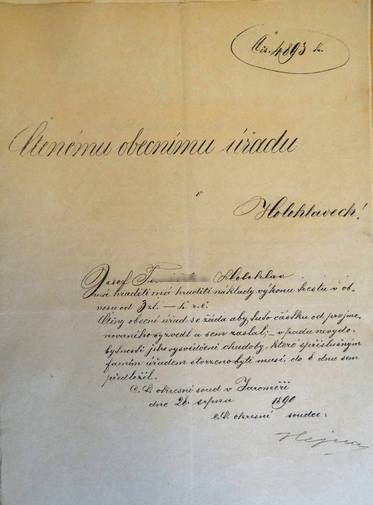 Čís. 4893
Ctěnému obecnímu úřadu
v
Holohlavech!
Josef Holohlav
má hraditi náklady výkonu trestu v ob-
nosu od 3 zl. — k. r. č.
Ctěný obecní úřad se žádá aby, tuto částku od pojme-
novaného vyzvedl a sem zaslal; — v pádu nevydo-
bytnosti jeho vysvědčení chudoby, které příslušným
farním úřadem stvrzeno býti musí, do 6 dnů sem
předložil.
C. k. okresní soud v Jaroměři
dne 26 srpna 1890
c. k. okresní soudce: